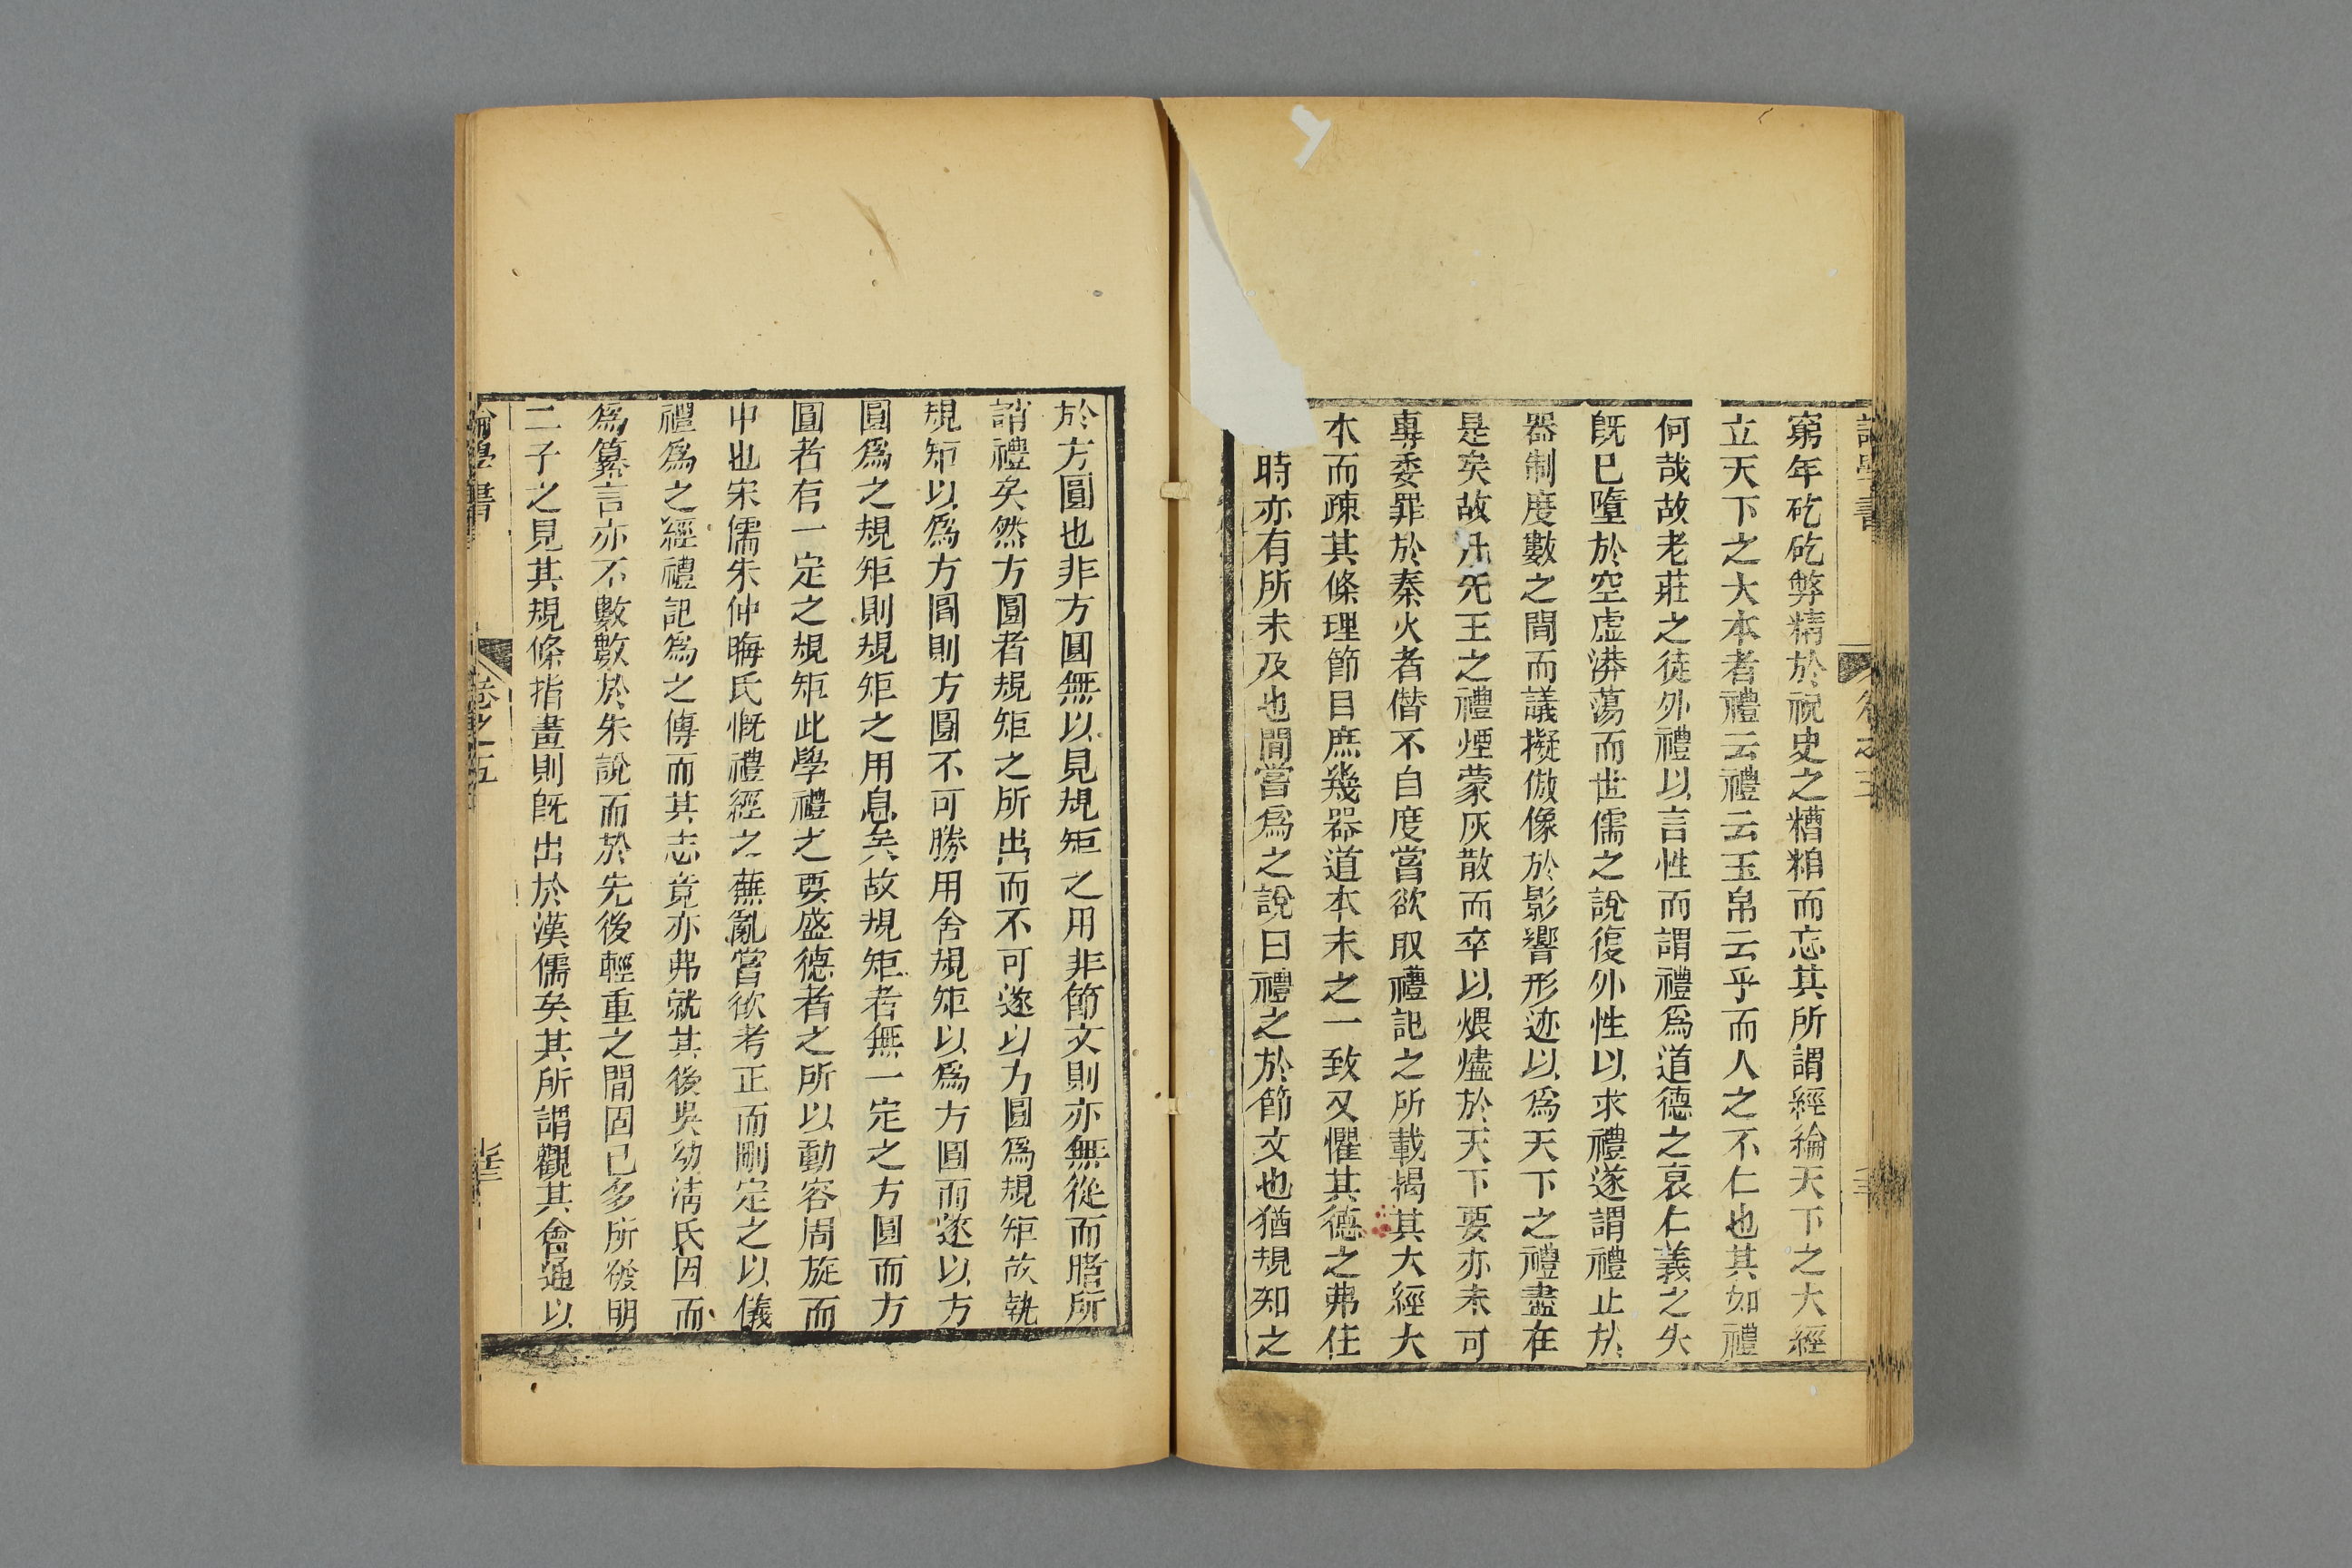 窮年矻矻弊精於祝史之糟粕而忘其所謂經綸天下之大經
立天下之大本者禮云禮云玉帛云乎而人之不仁也其如禮
何哉故老莊之徒外禮以言性而謂禮爲道德之衰仁義之失
旣已墮於空虛漭蕩而世儒之說復外性以求禮遂謂禮止於
器制度數之間而議擬倣像於影響形迹以爲天下之禮盡在
是矣故凡先王之禮煙蒙灰散而卒以煨燼於天下要亦未可
專委罪於秦火者僭不自度嘗欲取禮記之所載揭其大經大
本而疎其條理節目庶幾器道本末之一致又懼其德之弗任
時亦有所未及也間嘗爲之說曰禮之於節文也猶規矩之
於方圓也非方圓無以見規矩之用非節文則亦無從而睹所
謂禮矣然方圓者規矩之所出而不可遂以方圓爲規矩故執
規矩以爲方圓則方圓不可勝用舍規矩以爲方圓而遂以方
圓爲之規矩則規矩之用息矣故規矩者無一定之方圓而方
圓者有一定之規矩此學禮之要盛德者之所以動容周旋而
中也宋儒朱仲晦氏慨禮經之蕪亂嘗欲考正而刪定之以儀
禮爲之經禮記爲之傳而其志竟亦弗就其後吳幼淸氏因而
爲纂言亦不數數於朱說而於先後輕重之間固已多所發明
二子之見其規條指畫則旣出於漢儒矣其所謂觀其會通以
論學書
卷之五